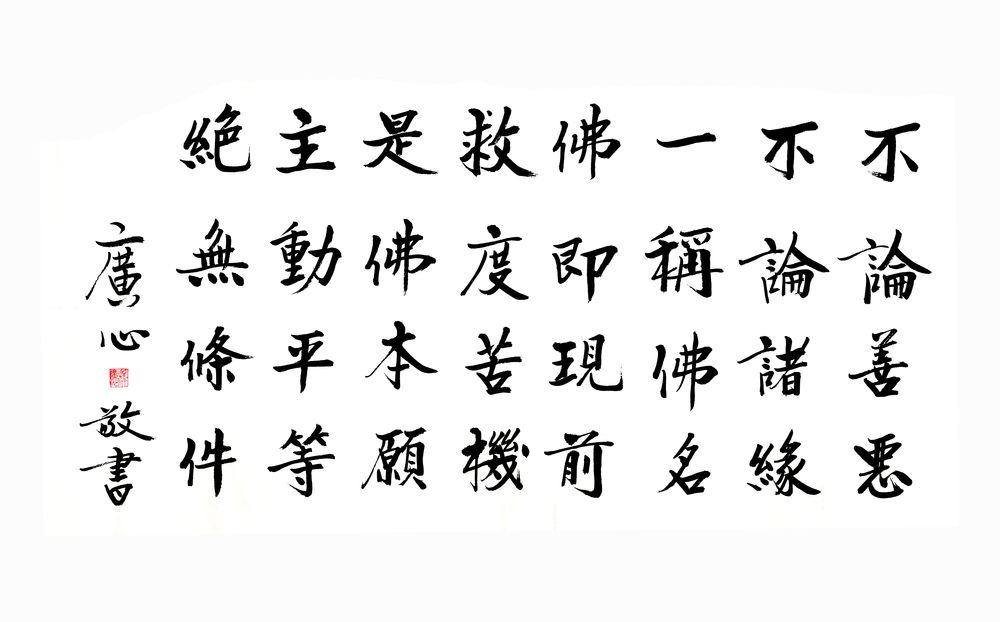 不論善悪
不論諸緣
一稱佛名
佛即現前
救度苦機
是佛本願
主動平等
絕無條件
廣心敬書